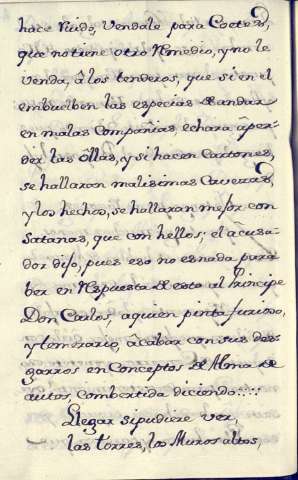 hace Ruido, Vendale para Coetes,
que no tiene otro Remedio, y no le
venda, â los tenderos, que si en el
embuelben las especias de andar
en malas Compañias, echara âper-
der las Ollas, y si hacen Cartones,
se hallaran malisimas Caveras,
y los hechos, se hallaran mejor con
Satanas, que con hellos; el âcusa-
dor dijo, pues eso no es nada para
ber en Respuesta de esto al Principe
Don Carlos, a quien pinta furioso,
y temerario, acabar con sus des-
garros en Conceptos de Alma de
autos, combertida diciendo....
Llegar si pudiere ver,
las torres, los Muros altos,